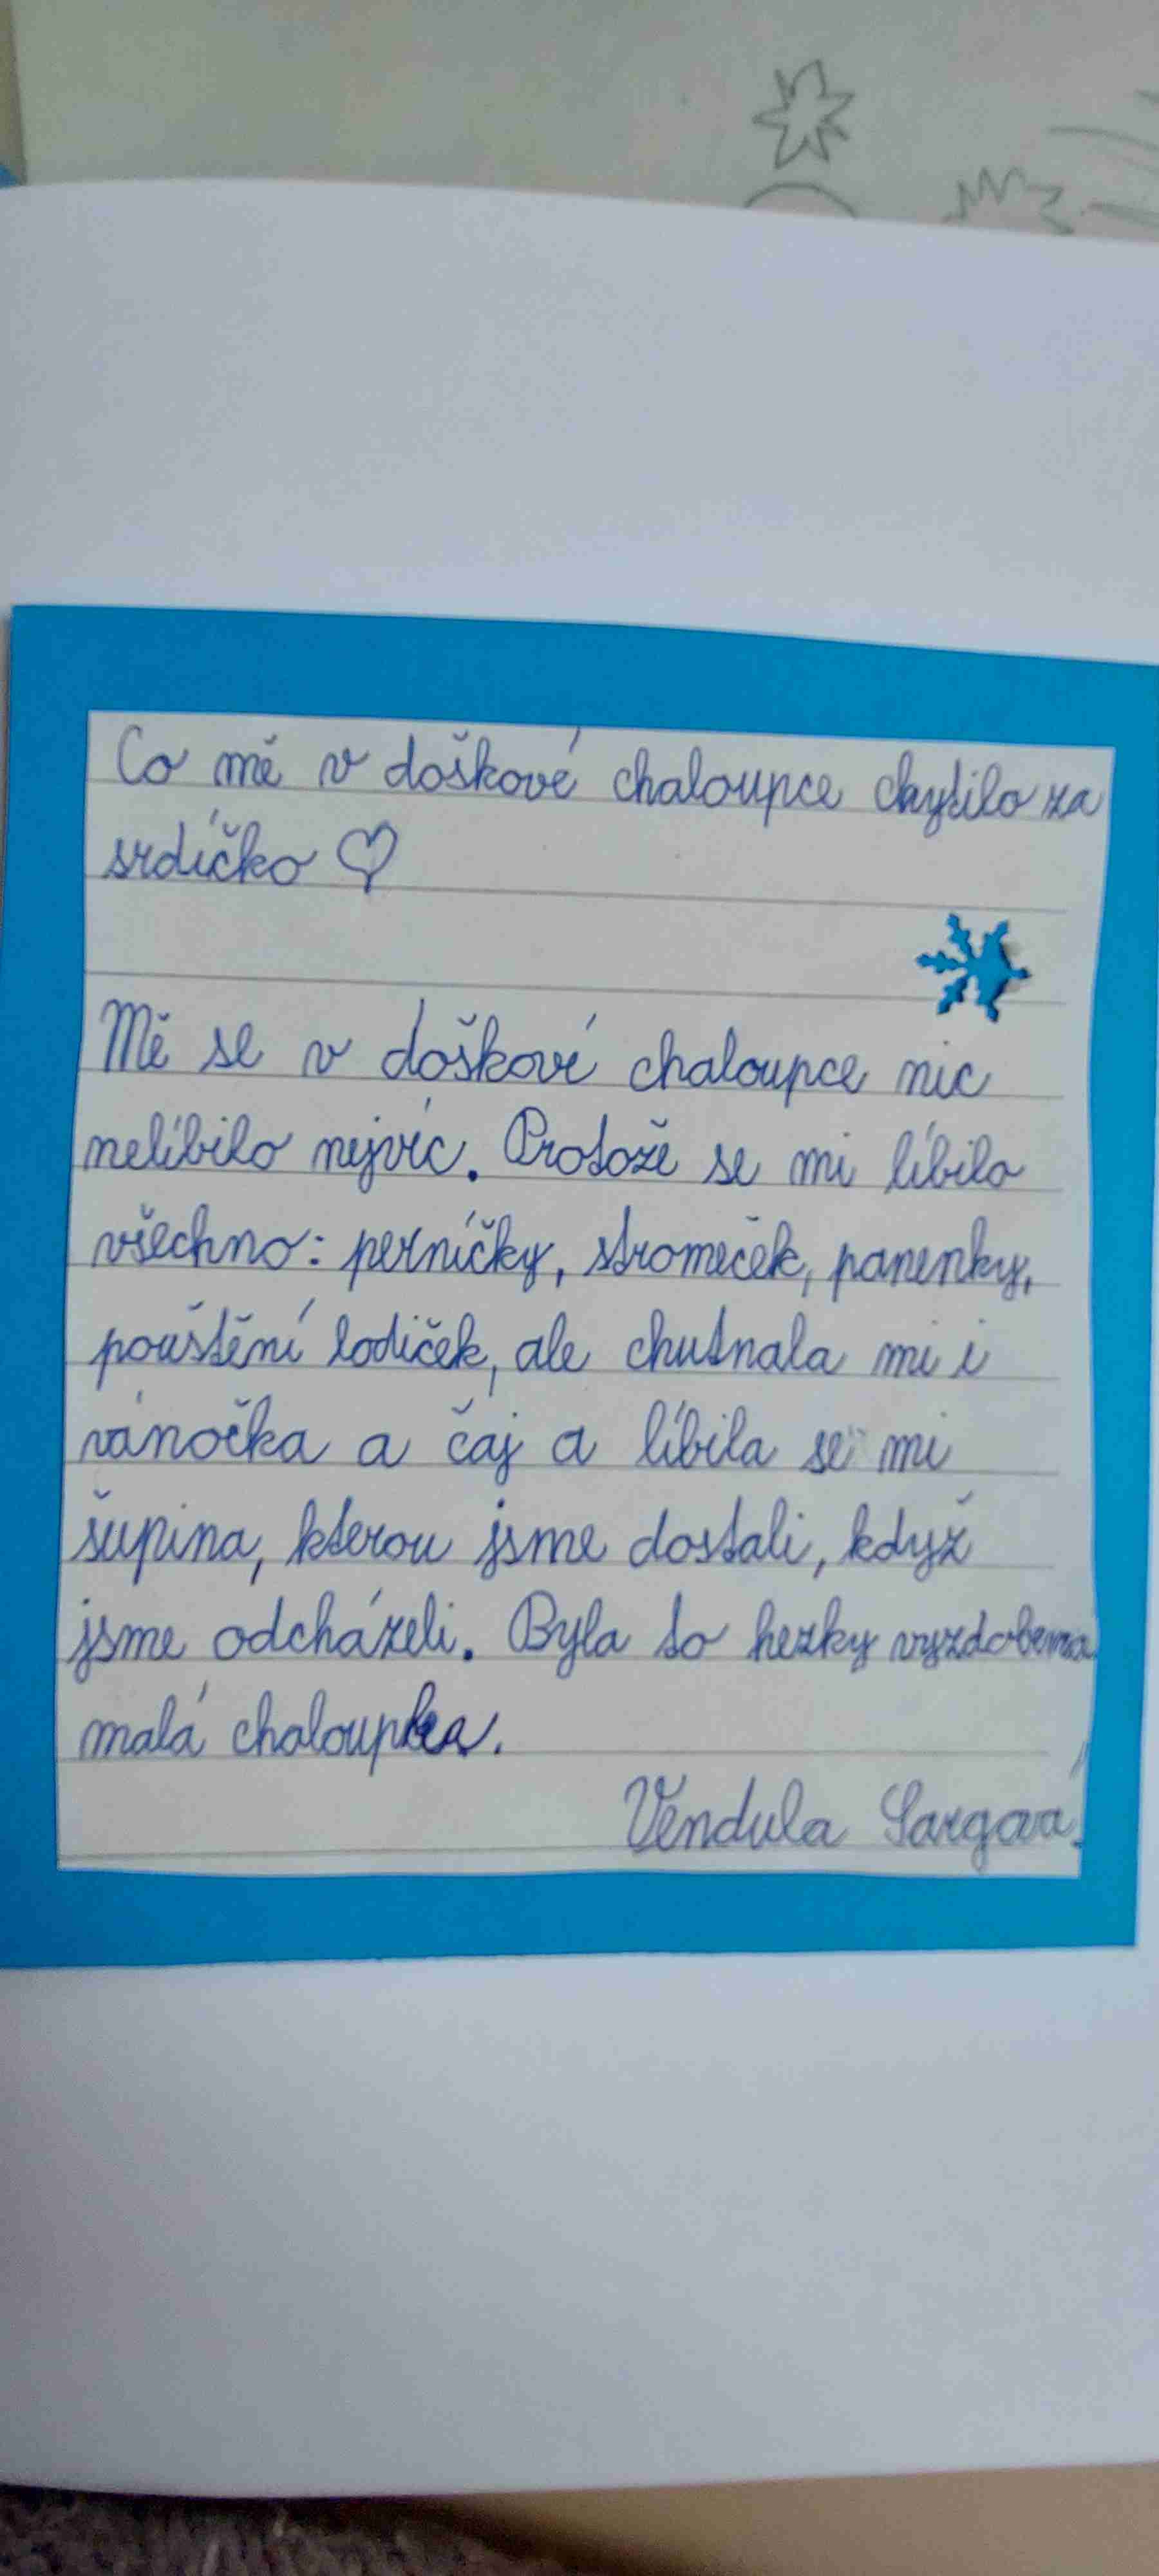 Co mě v doškové chaloupce chytilo za
srdíčko ♡
Mě se v doškové chaloupce nic
nelíbilo nejvíc. Protože se mi líbilo
všechno: perníčky, stromeček, panenky,
pouštění lodiček, ale chutnala mi i
vánočka a čaj a líbila se mi
šupina, kterou jsme dostali, když
jsme odcházeli. Byla to hezky vyzdobená
malá chaloupka.
Vendula Sargová